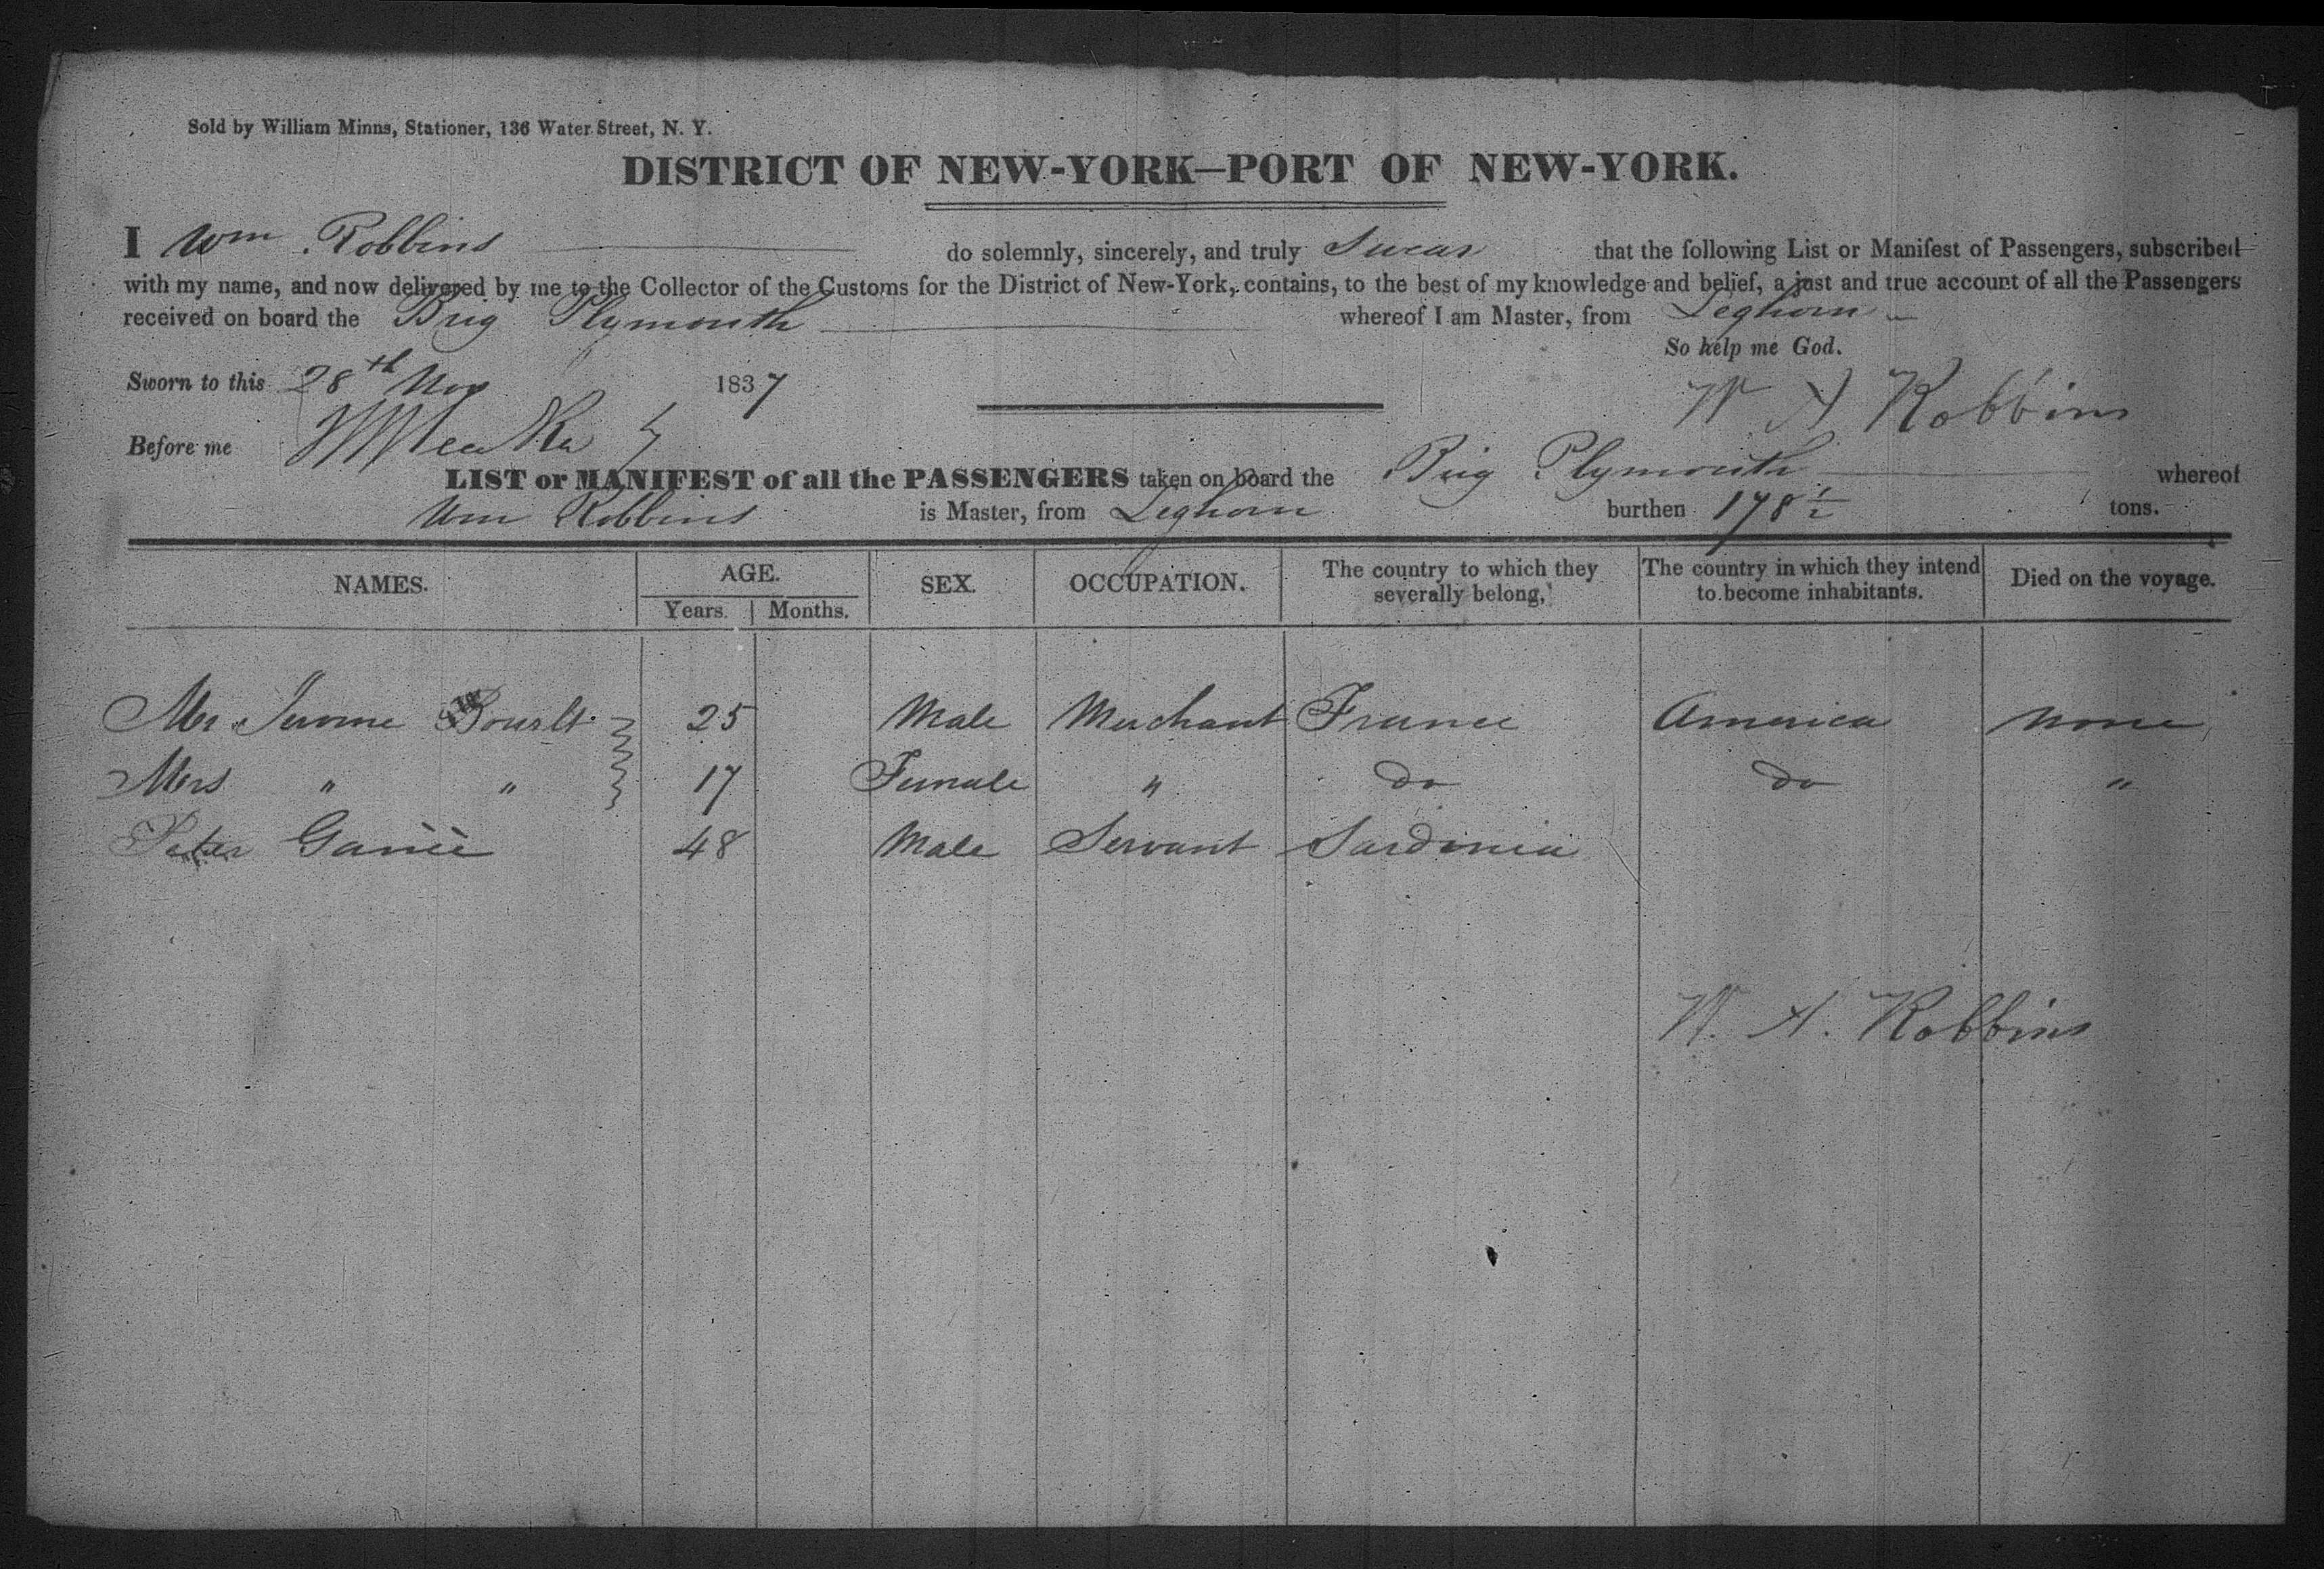 Sold by William Minns, Stationer, 136 Water Street, N. Y.
DISTRICT OF NEW-YORK—PORT OF NEW-YORK.
I Wm Robbins do solemnly, sincerely, and truly Swear that the following List or Manifest of Passengers, subscribed
with my name, and now delivered by me to the Collector of the Customs for the District of New-York, contains, to the best of my knowledge and belief, a just and true account of all the Passengers
received on board the Brig Plymouth whereof I am Master, from Leghorn
So help me God.
Sworn to this 28th Nov 1837
W A Robbins
Before me
LIST or MANIFEST of all the PASSENGERS taken on board the Brig Plymouth whereof
Wm Robbins is Master, from Leghorn burthen 178 1/2 tons.
NAMES. AGE. SEX. OCCUPATION. The country to which they severally belong, The country in which they intend to become inhabitants. Died on the voyage.
Years. Months.
Mr Jerome 25 Male Merchant France America none
Mrs " " 17 Female " do do "
Peter 48 Male Servant Sardinia
W. A. Robbins